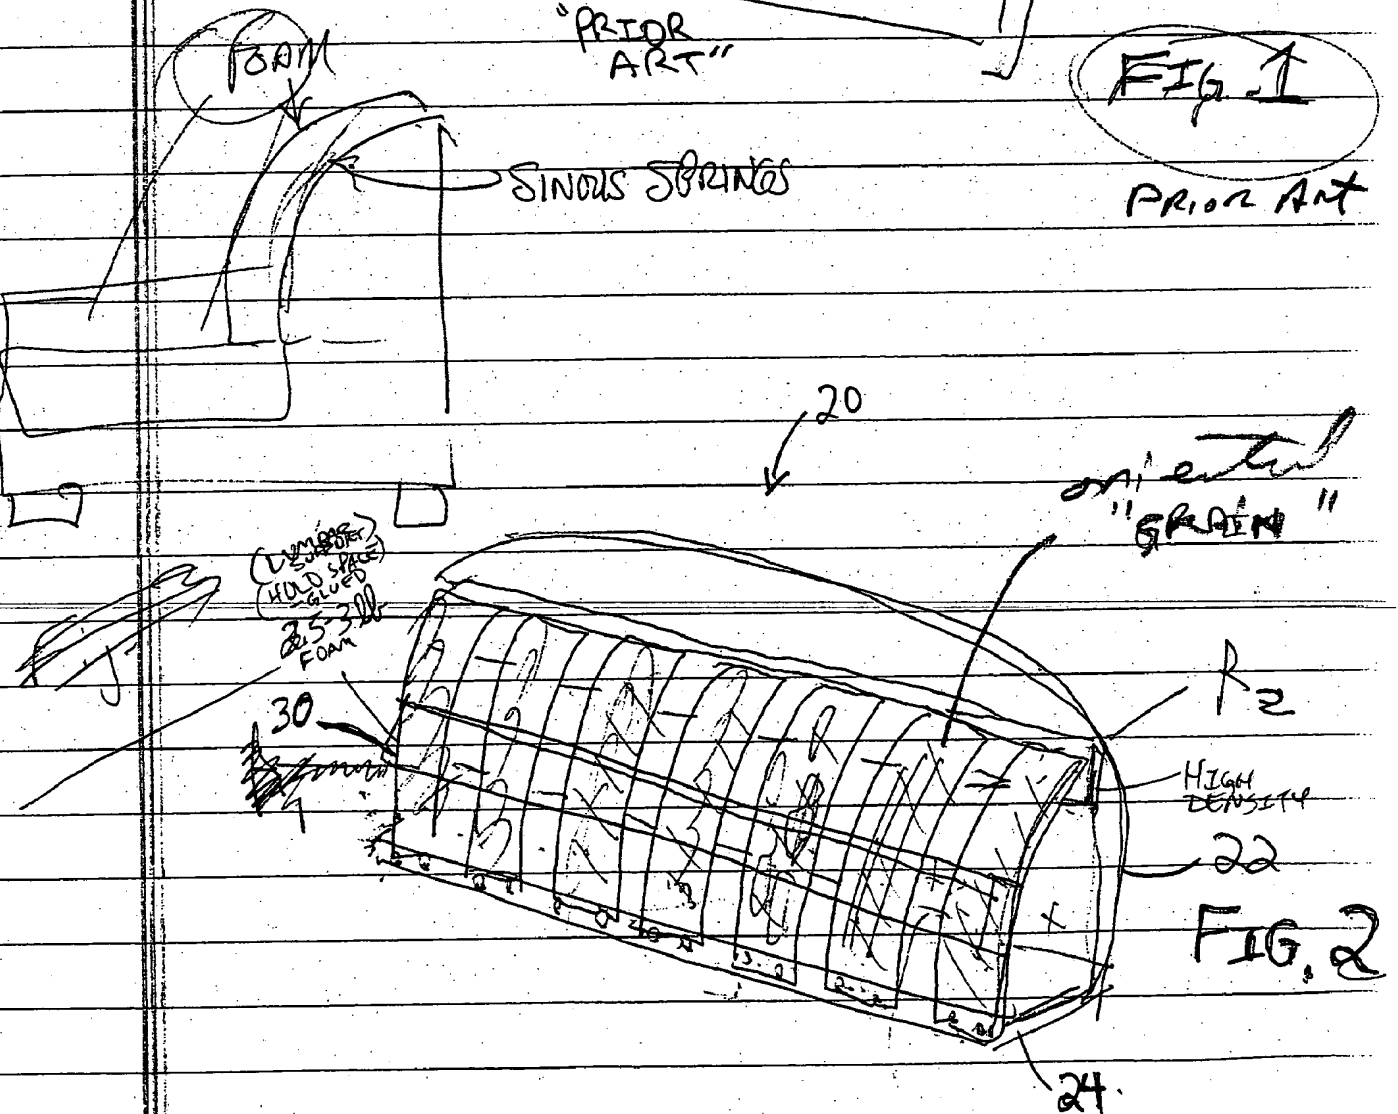 FOAM
"PRIOR
ART"
FIG. 1
PRIOR ART
SINOUS SPRINGS
20
oriented
"GRAIN"
(LUMBAR
SUPPORT)
(HOLD SPACE)
GLUED
2.5-3lb
FOAM
30
R2
HIGH
DENSITY
22
FIG. 2
24.